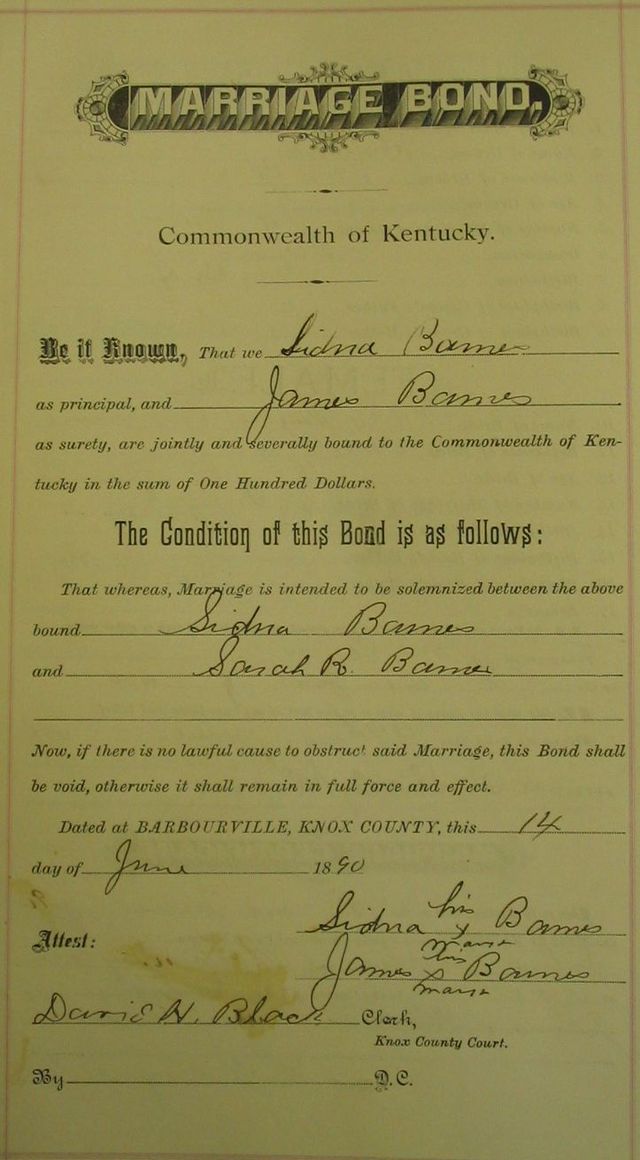 MARRIAGE BOND.
Commonwealth of Kentucky.
Be it Known, That we Sidna Barnes
as principal, and James Barnes
as surety, are jointly and severally bound to the Commonwealth of Ken-
tucky in the sum of One Hundred Dollars.
The Condition of this Bond is as follows:
That whereas, Marriage is intended to be solemnized between the above
bound Sidna Barnes
and Sarah R. Barnes
Now, if there is no lawful cause to obstruct said Marriage, this Bond shall
be void, otherwise it shall remain in full force and effect.
Dated at BARBOURVILLE, KNOX COUNTY, this 14
day of June 1890
his
Sidna x Barnes
mark
Attest:
his
James x Barnes
mark
David H. Black Clerk,
Knox County Court.
By D.C.